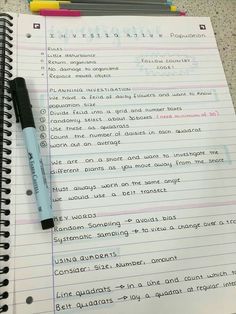 INVESTIGATIVE Population
RULES
Little disturbance
Return organisms
No damage to organisms
Replace moved object
FOLLOW COUNTRY
CODE!
PLANNING INVESTIGATION
We have a field of daisy flowers and want to know
population size.
Divide field into a grid and number boxes
randomly select about 30 boxes (need minimum of 30)
Use these as quadrats
Count the number of daisies in each quadrat
work out an average
We are on a shore and want to investigate the
different plants as you move away from the shore
Must always work on the same angle
we would use a belt transect
KEY WORDS
Random Sampling → avoids bias
Systematic sampling → to view a change over a tra
USING QUADRATS
Consider: Size, Number, amount
Line quadrats → in a line and count which to
Belt quadrats → lay a quadrat at regular inte